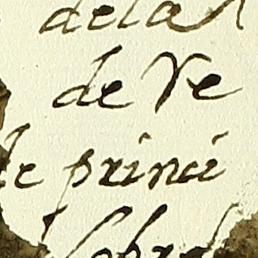 dela
de Ve
de princi